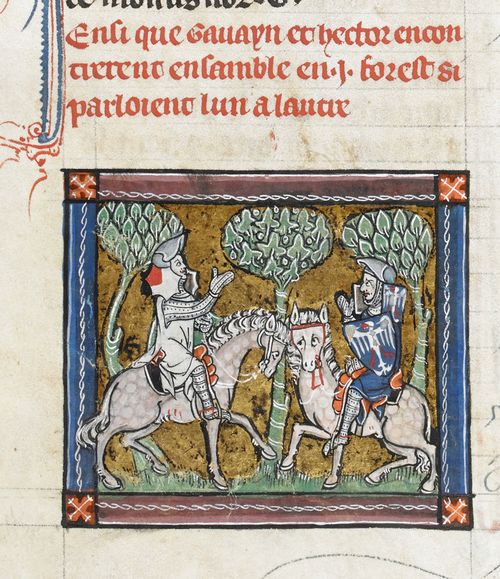 Ensi que Gauayn et hector encon
trerent ensamble en .j. forest si
parloient lun a lautre